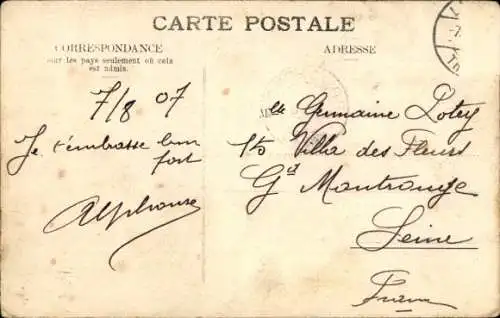 CARTE POSTALE
CORRESPONDANCE
Pour les pays seulement où cela
est admis.
ADRESSE
7/8 07
Je t'embrasse bien
fort
Alphonse
Mlle Germaine
15 Villa des Fleurs
Gd Montrouge
Seine
France